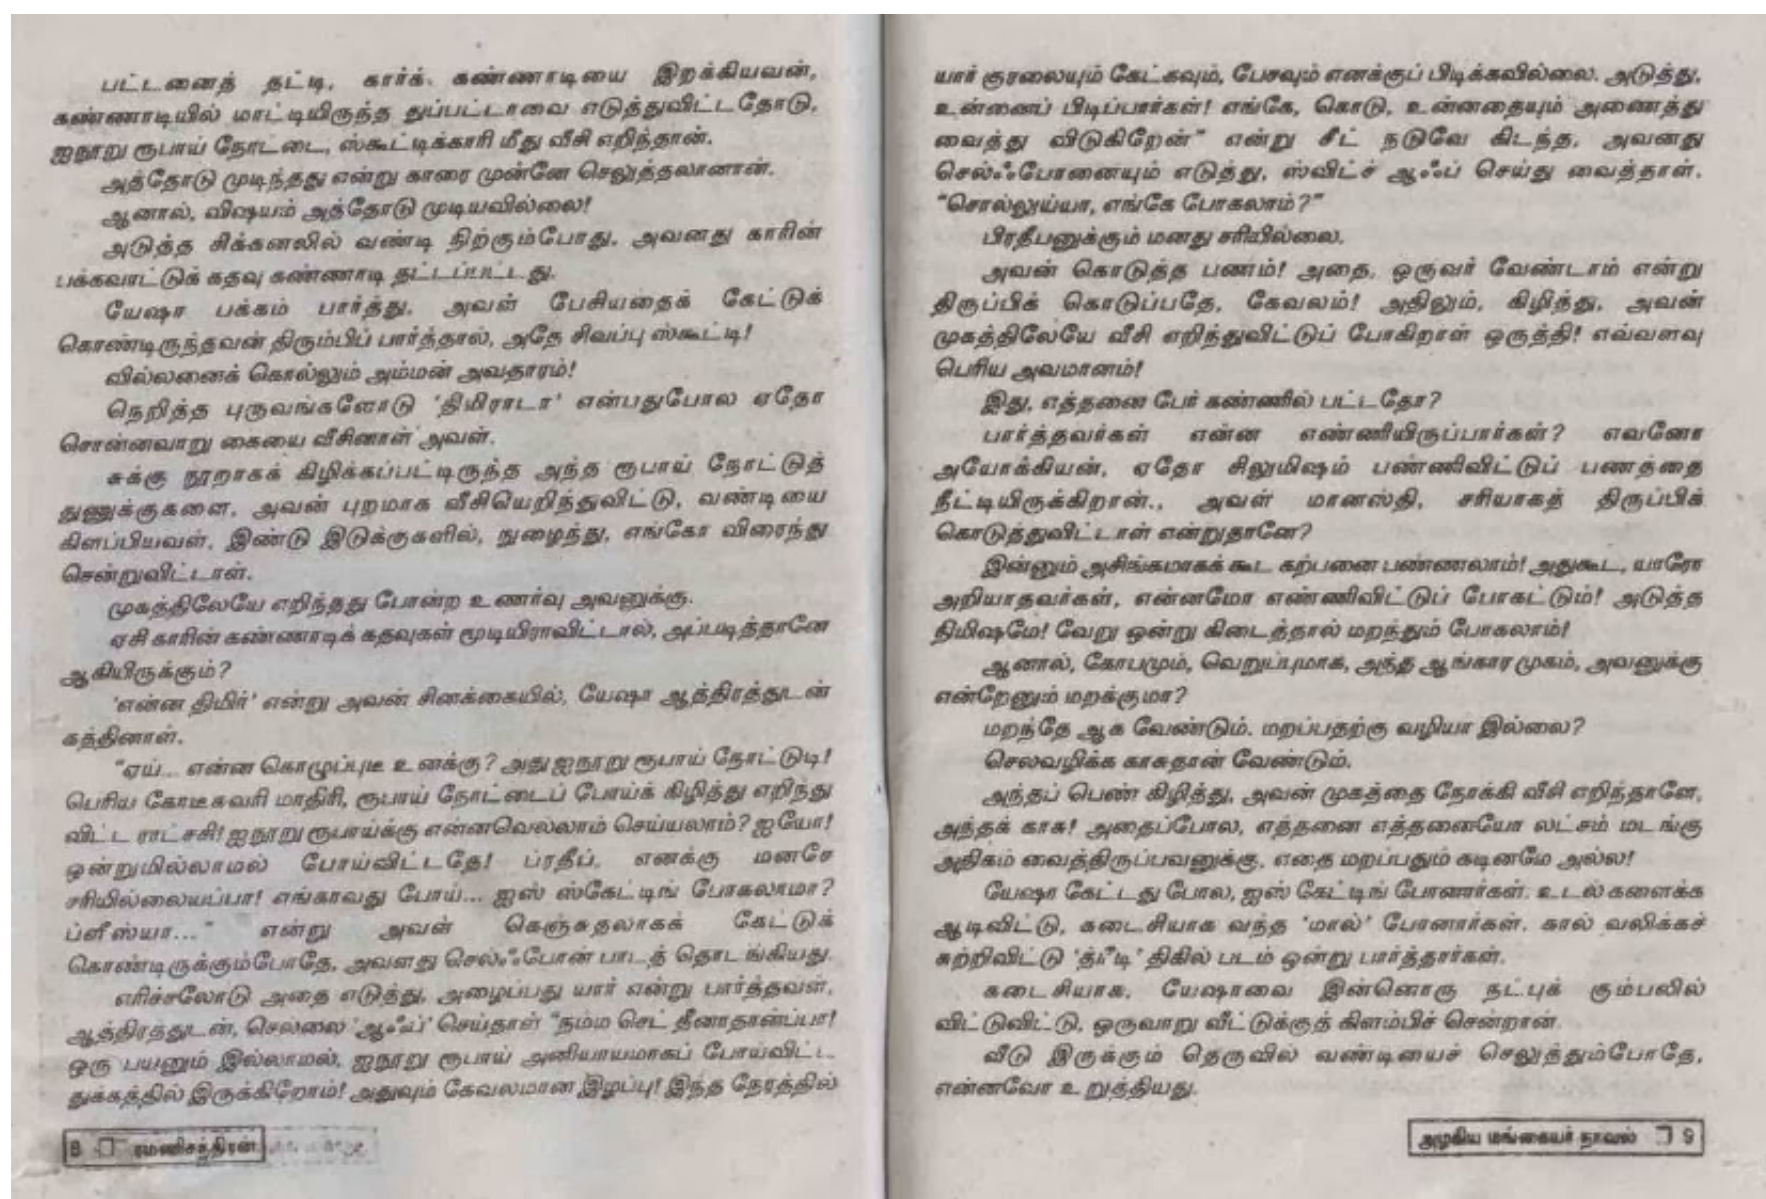 பட்டனைத் தட்டி, கார்க் கண்ணாடியை இறக்கியவன்,
கண்ணாடியில் மாட்டியிருந்த துப்பட்டாவை எடுத்துவிட்டதோடு,
ஐநூறு ரூபாய் நோட்டை, ஸ்கூட்டிக்காரி மீது வீசி எறிந்தான்.
அத்தோடு முடிந்தது என்று காரை முன்னே செலுத்தலானான்.
ஆனால், விஷயம் அத்தோடு முடியவில்லை!
அடுத்த சிக்கனலில் வண்டி நிற்கும்போது, அவனது காரின்
பக்கவாட்டுக் கதவு கண்ணாடி தட்டப்பட்டது.
யேஷா பக்கம் பார்த்து, அவள் பேசியதைக் கேட்டுக்
கொண்டிருந்தவன் திரும்பிப் பார்த்தால், அதே சிவப்பு ஸ்கூட்டி!
வில்லனைக் கொல்லும் அம்மன் அவதாரம்!
நெறித்த புருவங்களோடு 'திமிராடா' என்பதுபோல ஏதோ
சொன்னவாறு கையை வீசினாள் அவள்.
சுக்கு நூறாகக் கிழிக்கப்பட்டிருந்த அந்த ரூபாய் நோட்டுத்
துணுக்குகளை, அவன் புறமாக வீசியெறிந்துவிட்டு, வண்டியை
கிளப்பியவள், இண்டு இடுக்குகளில், நுழைந்து, எங்கோ விரைந்து
சென்றுவிட்டாள்.
முகத்திலேயே எறிந்தது போன்ற உணர்வு அவனுக்கு.
ஏசி காரின் கண்ணாடிக் கதவுகள் மூடியிராவிட்டால், அப்படித்தானே
ஆகியிருக்கும்?
'என்ன திமிர்' என்று அவன் சினக்கையில், யேஷா ஆத்திரத்துடன்
கத்தினாள்.
"ஏய்... என்ன கொழுப்புடீ உனக்கு? அது ஐநூறு ரூபாய் நோட்டுடி!
பெரிய கோடீசுவரி மாதிரி, ரூபாய் நோட்டைப் போய்க் கிழித்து எறிந்து
விட்ட ராட்சசி! ஐநூறு ரூபாய்க்கு என்னவெல்லாம் செய்யலாம்? ஐயோ!
ஒன்றுமில்லாமல் போய்விட்டதே! ப்ரதீப், எனக்கு மனசே
சரியில்லையப்பா! எங்காவது போய்... ஐஸ் ஸ்கேட்டிங் போகலாமா?
ப்ளீஸ்யா..." என்று அவள் கெஞ்சுதலாகக் கேட்டுக்
கொண்டிருக்கும்போதே, அவளது செல்ஃபோன் பாடத் தொடங்கியது.
எரிச்சலோடு அதை எடுத்து, அழைப்பது யார் என்று பார்த்தவள்,
ஆத்திரத்துடன், செல்லை 'ஆஃப்' செய்தாள் "நம்ம செட் தீனாதான்ப்பா!
ஒரு பயனும் இல்லாமல், ஐநூறு ரூபாய் அனியாயமாகப் போய்விட்ட
துக்கத்தில் இருக்கிறோம்! அதுவும் கேவலமான இழப்பு! இந்த நேரத்தில்
8 ரமணிசந்திரன்
யார் குரலையும் கேட்கவும், பேசவும் எனக்குப் பிடிக்கவில்லை. அடுத்து,
உன்னைப் பிடிப்பார்கள்! எங்கே, கொடு, உன்னதையும் அணைத்து
வைத்து விடுகிறேன்" என்று சீட் நடுவே கிடந்த, அவனது
செல்ஃபோனையும் எடுத்து, ஸ்விட்ச் ஆஃப் செய்து வைத்தாள்.
"சொல்லுய்யா, எங்கே போகலாம்?"
பிரதீபனுக்கும் மனது சரியில்லை.
அவன் கொடுத்த பணம்! அதை, ஒருவர் வேண்டாம் என்று
திருப்பிக் கொடுப்பதே, கேவலம்! அதிலும், கிழித்து, அவன்
முகத்திலேயே வீசி எறிந்துவிட்டுப் போகிறாள் ஒருத்தி! எவ்வளவு
பெரிய அவமானம்!
இது, எத்தனை பேர் கண்ணில் பட்டதோ?
பார்த்தவர்கள் என்ன எண்ணியிருப்பார்கள்? எவனோ
அயோக்கியன், ஏதோ சிலுமிஷம் பண்ணிவிட்டுப் பணத்தை
நீட்டியிருக்கிறான்., அவள் மானஸ்தி, சரியாகத் திருப்பிக்
கொடுத்துவிட்டாள் என்றுதானே?
இன்னும் அசிங்கமாகக் கூட கற்பனை பண்ணலாம்! அதுகூட, யாரோ
அறியாதவர்கள், என்னமோ எண்ணிவிட்டுப் போகட்டும்! அடுத்த
நிமிஷமே! வேறு ஒன்று கிடைத்தால் மறந்தும் போகலாம்!
ஆனால், கோபமும், வெறுப்புமாக, அந்த ஆங்கார முகம், அவனுக்கு
என்றேனும் மறக்குமா?
மறந்தே ஆக வேண்டும். மறப்பதற்கு வழியா இல்லை?
செலவழிக்க காசுதான் வேண்டும்.
அந்தப் பெண் கிழித்து, அவன் முகத்தை நோக்கி வீசி எறிந்தாளே,
அந்தக் காசு! அதைப்போல, எத்தனை எத்தனையோ லட்சம் மடங்கு
அதிகம் வைத்திருப்பவனுக்கு, எதை மறப்பதும் கடினமே அல்ல!
யேஷா கேட்டது போல, ஐஸ் கேட்டிங் போனார்கள். உடல் களைக்க
ஆடிவிட்டு, கடைசியாக வந்த 'மால்' போனார்கள். கால் வலிக்கச்
சுற்றிவிட்டு 'த்ரீடி' திகில் படம் ஒன்று பார்த்தார்கள்.
கடைசியாக, யேஷாவை இன்னொரு நட்புக் கும்பலில்
விட்டுவிட்டு, ஒருவாறு வீட்டுக்குத் கிளம்பிச் சென்றான்.
வீடு இருக்கும் தெருவில் வண்டியைச் செலுத்தும்போதே,
என்னவோ உறுத்தியது.
அழகிய மங்கையர் நாவல் 9